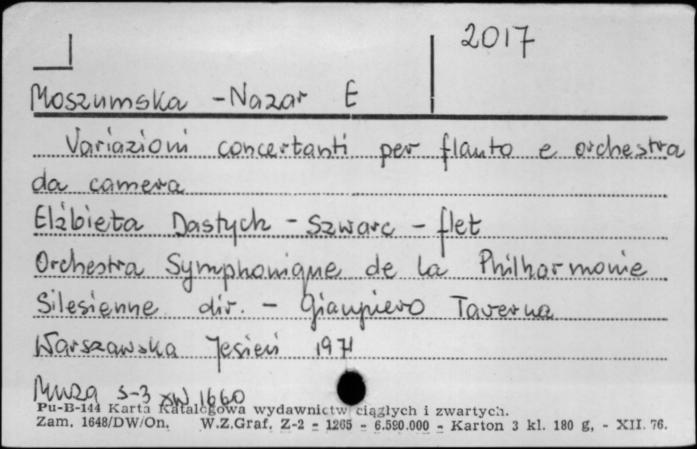 2017
Moszumska - Nazar E
Variazioni concertanti per flauto e orchestra
da camera
Elżbieta Dastych - Szwarc - flet
Orchestra Symphonique de la Philharmonie
Silesienne dir. - Gianpiero Taverna
Warszawska Jesień 1971
Muza S-3 XW 1660
Pu-B-144 Karta Katalogowa wydawnictw ciągłych i zwartych.
Zam. 1648/DW/On. W.Z.Graf. Z-2 - 1265 - 6.590.000 - Karton 3 kl. 180 g, - XII. 76.